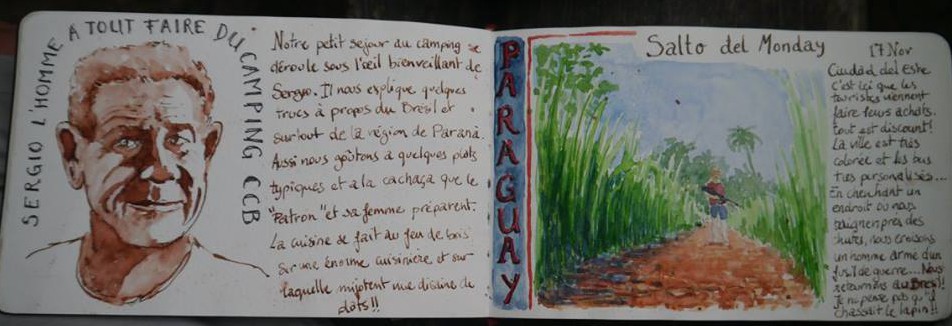 SERGIO L'HOMME A TOUT FAIRE DU CAMPING CCB
Notre petit sejour au camping se
déroule sous l'œil bienveillant de
Sergio. Il nous explique quelques
trucs à propos du Brésil et
surtout de la région de Paraná.
Aussi nous goûtons à quelques plats
typiques et à la cachaça que le
"Patron" et sa femme préparent.
La cuisine se fait au feu de bois
sur une énorme cuisinière et sur
laquelle mijotent une dizaine de
plats!!
PARAGUAY
Salto del Monday
17 Nov
Ciudad del Este
C'est ici que les
touristes viennent
faire leurs achats.
tout est discount!
La ville est très
colorée et les bus
très personnalisés...
En cherchant un
endroit où nous
baigner près des
chutes, nous croisons
un homme armé d'un
fusil de guerre... Nous
retournons au Brésil!
Je ne pense pas qu'il
chassait le lapin!!